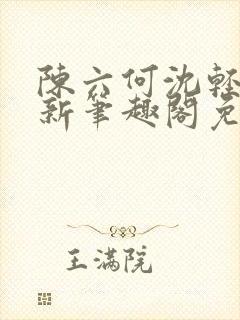 陳六何沈輕
新筆趣閣免
王滿院